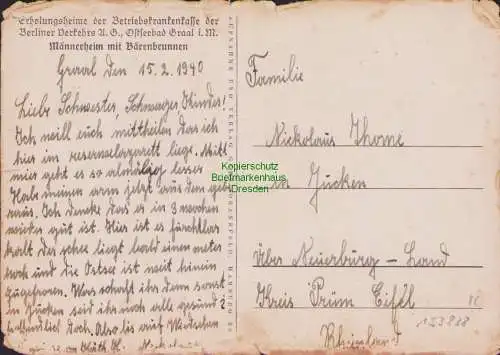 Erholungsheime der Betriebskrankenkasse der
Berliner Verkehrs A. G., Ostseebad Graal i. M.
Männerheim mit Bärenbrunnen
Graal den 15.2.1940
Liebe Schwester, Schwager Kinder!
Ich will euch mittheilen das ich
hier im reservelazarett liege. Mitt
mier geht es so almälig besser
Habe meinen arm jetzt aus dem
raus. Ich denke das er in 3 wochen
wieder gut ist. Hier ist es fürchtbar
kalt. Der schee liegt bald einen meter
hoch und die Ostsee ist weit hinein
zugefroren. Was schafft ihr denn sonst
in Jucken seid ihr noch alle gesund?
hoffendlich doch. Also bis auf Wiedersehen
Familie
Nickolaus Thome
in Jucken
über Neuerburg – Land
Kreis Prüm Eifel
Rheinland
153888
Kopierschutz
Briefmarkenhaus
Dresden